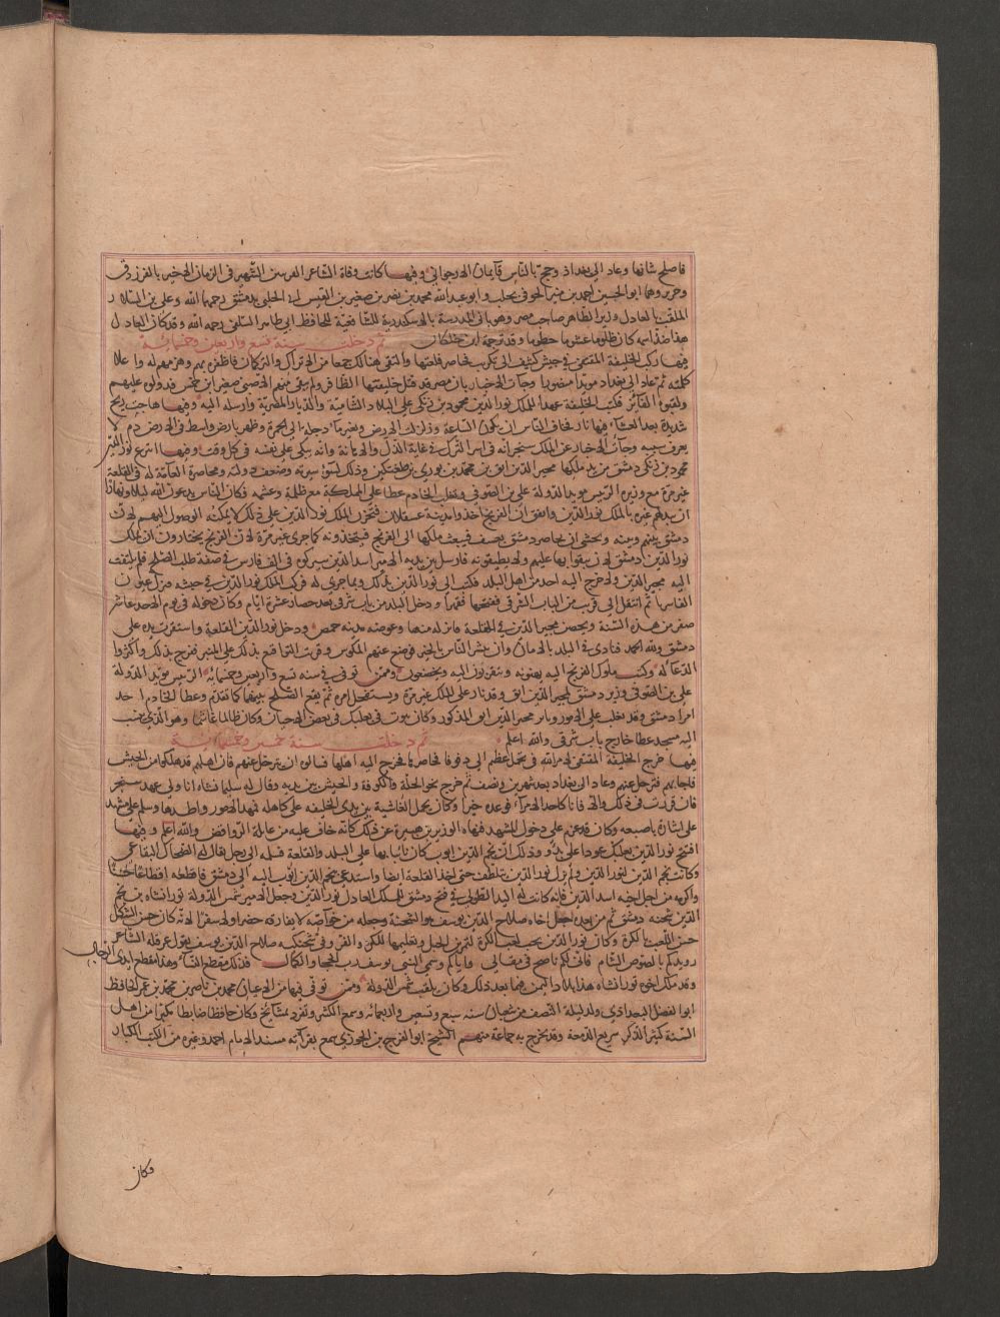 فاصلح شانها وعاد الى بغداد وحج بالناس قايماز الارجواني وفيها كانت وفاة الشاعر القرينين الشهير في الزمان الاخير بالفرزدق
وجرير وهما ابو الحسين احمد بن منير الجوني بحلب وابو عبد الله محمد بن نصر بن صغير بن القيسراني الحلبي بدمشق رحمهما الله وعلي بن السلار
الملقب بالعادل وزير الظاهر صاحب مصر وهو باني المدرسة بالاسكندرية للشافعية للحافظ ابي طاهر السلفي رحمه الله وقد كان العادل
هذا ضد اسمه كان ظلوما غشوما حطوما وقد ترجمه ابن خلكان ثم دخلت سنة تسع واربعين وخمسمائة
فيها ركب الخليفة المقتفي في جيش كثيف الى تكريت فحاصر قلعتها والتقى هنالك جمعا من الاتراك والتركمان فاظفره بهم وهزمهم له واعلا
كلمته ثم عاد الى بغداد مؤيدا منصورا وجات الاخبار بان مصر قد قتل خليفتها الظافر ولم يبق منهم الا صبي صغير ابن خمس قد ولوه عليهم
ولقبوه الفائز فكتب الخليفة عهدا للملك نور الدين محمود بن زنكي على البلاد الشامية والديار المصرية وارسله اليه وفيها هاجت ريح
شديدة بعد العشاء فيها نار فخاف الناس ان تكون الساعة وزلزلت الارض وتغير ماء دجلة الى الحمرة وظهر بارض واسط في الارض دم لا
يعرف سببه وجات الاخبار عن الملك سنجر انه في اسر الترك في غاية الذل والاهانة وانه يبكي على نفسه في كل وقت وفيها انتزع نور الدين
محمود بن زنكي دمشق من يد ملكها مجير الدين ابق بن محمد بن بوري بن طغتكين وذلك لسوء سيرته وضعف دولته ومحاصرة العامة له في القلعة
غير مرة مع وزيره الرئيس مويد الدولة علي بن الصوفي وتغلب الخادم عطا على المملكة مع ظلمه وغشمه فكان الناس يدعون الله ليلا ونهارا
ان يبدلهم غيره بالملك نور الدين واتفق ان الفرنج اخذوا مدينة عسقلان فتحزن الملك نور الدين على ذلك لا يمكنه الوصول اليهم لان
دمشق بينهم وبينه ويخشى ان يحاصر دمشق فيبعث ملكها الى الفرنج فينجدونه كما جرى غير مرة لان الفرنج يختارون ان يملك
نور الدين دمشق لان يتقوا بها عليهم ولا يطيقونه فارسل بين يديه الامير اسد الدين شيركوه في الف فارس في صفة طلب الصلح فلم يلتفت
اليه مجير الدين ولا خرج اليه احد من اهل البلد فكتب الى نور الدين بذلك وبما جرى له فركب الملك نور الدين في جيشه فنزل عيون
الفاسريا ثم انتقل الى قريب من الباب الشرقي ففتحها قهرا ودخل البلد من باب شرقي بعد حصار عشرة ايام وكان دخوله في يوم الاحد عاشر
صفر من هذه السنة وتحصن مجير الدين في القلعة فانزله منها وعوضه مدينة حمص ودخل نور الدين القلعة واستقرت يده على
دمشق ولله الحمد فنادى في البلد بالامان وان يبشر الناس بالخير فوضع عنهم المكوس وقرئت التواقيع بذلك على المنبر ففرح بذلك واكثروا
الدعاء له وكتب ملوك الفرنج اليه يهنونه ويتقربون اليه ويخضعون وممن توفي في سنة تسع واربعين وخمسمائة الرئيس مؤيد الدولة
علي بن الصوفي وزير دمشق لمجير الدين ابق وقد ثار على الملك غير مرة ويستفحل امره ثم يقع الصلح بينهما كما تقدم وعطا الخادم احد
امرا دمشق وقد تغلب على الامور بامر مجير الدين ابق المذكور وكان ينوب في بعلبك في بعض الاحيان وكان ظالما غاشما وهو الذي ينسب
اليه مسجد عطا خارج باب شرقي والله اعلم ثم دخلت سنة خمسين وخمسمائة
فيها خرج الخليفة المقتفي لامر الله في تجمل عظيم الى دقوقا فحاصرها فخرج اليه اهلها فسالوه ان يرحل عنهم فان اهلهم قد هلكوا من الجيش
فاجابهم فترحل عنهم وعاد الى بغداد بعد شهرين ونصف ثم خرج نحو الحلة والكوفة والجيش بين يديه وقال له سليمان شاه انا ولي عهد سنجر
فان قررت في ذلك والا فانا كاحد الامراء فوعده خيرا وكان يحمل الغاشية بين يدي الخليفة على كاهله فمهد الامور واطدها وسلم على مشهد
علي اشارة باصبعه وكان قد عزم على دخول المشهد فنهاه الوزير بن هبيرة عن ذلك كانه خاف عليه من غائلة الروافض والله اعلم وفيها
افتتح نور الدين بعلبك عودا على بدو وذلك ان نجم الدين ايوب كان نائبا بها على البلد والقلعة فسلمه الى رجل يقال له الضحاك البقاعي
وكاتب نجم الدين لنور الدين ولم يزل نور الدين يتلطف حتى اخذ القلعة ايضا واستدعى نجم الدين ايوب اليه الى دمشق فاقطعه اقطاعا حسنا
واكرمه من اجل اخيه اسد الدين فانه كانت له اليد الطولى في فتح دمشق للملك العادل نور الدين وجعل الامير شمس الدولة تورانشاه بن نجم
الدين شحنة دمشق ثم من بعده جعل اخاه صلاح الدين يوسف هو الشحنة وجعله من خواصه لا يفارقه حضرا ولا سفرا لانه كان حسن الشكل
حسن اللعب بالكرة وكان نور الدين يحب لعب الكرة لتمرين الخيل وتعليمها للكر والفر وفي شحنكية صلاح الدين يوسف يقول عرقلة الشاعر
رويدكم يا لصوص الشام فاني لكم ناصح في مقالي فاياكم وسمي النبي يوسف رب الحجا والكمال فذلك مقطع النساء وهذا مقطع ايدي الرجال
وقد ملك اخوه تورانشاه هذا بلاد اليمن فيما بعد ذلك وكان يلقب شمس الدولة وممن توفي فيها من الاعيان محمد بن ناصر بن محمد بن عمر الحافظ
ابو الفضل البغدادي ولد ليلة النصف من شعبان سنة سبع وستين واربعمائة وسمع الكثير وتفرد بمشايخ وكان حافظا ضابطا مكثرا من اهل
السنة كثير الذكر سريع الدمعة وقد تخرج به جماعة منهم الشيخ ابو الفرج بن الجوزي سمع بقراءته مسند الامام احمد وغيره من الكتب الكبار
وكان